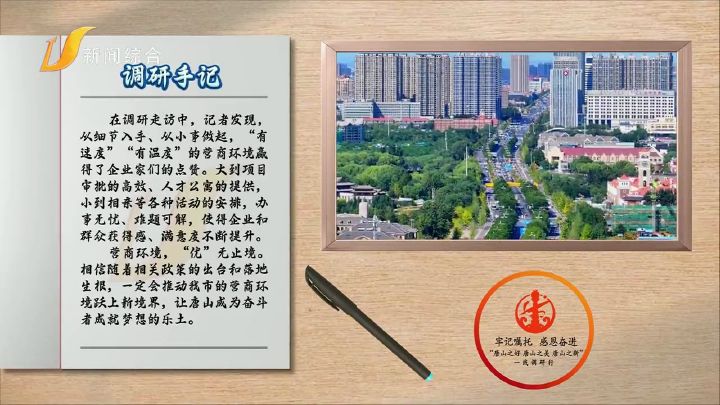 新闻综合
调研手记
在调研走访中，记者发现，
从细节入手、从小事做起，“有
速度”“有温度”的营商环境赢
得了企业家们的点赞。大到项目
审批的高效、人才公寓的提供，
小到相亲等各种活动的安排，办
事无忧、难题可解，使得企业和
群众获得感、满意度不断提升。
营商环境，“优”无止境。
相信随着相关政策的出台和落地
生根，一定会推动我市的营商环
境跃上新境界，让唐山成为奋斗
者成就梦想的乐土。
牢记嘱托 感恩奋进
“唐山之好 唐山之美 唐山之新”
一线调研行